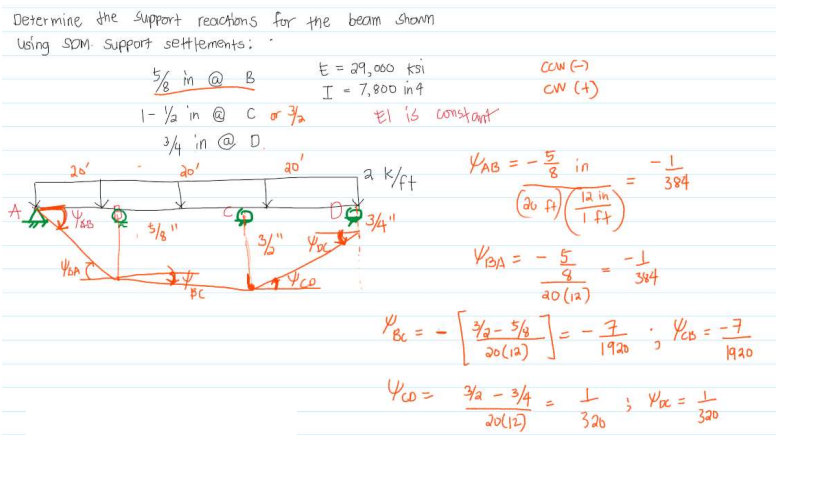 Determine the support reactions for the beam shown
using SDM. Support settlements:
5/8 in @ B
E = 29,000 ksi
CCW (-)
I = 7,800 in4
CW (+)
1-1/2 in @ C or 3/2
EI is constant
3/4 in @ D.
20' 20' 20'
2 k/ft
A B C D
ψAB
5/8"
3/2"
3/4"
ψBA
ψBC
ψCD
ψDC
ψAB = - 5/8 in / (20 ft)(12 in / 1 ft) = -1/384
ψBA = - 5/8 / 20(12) = -1/384
ψBC = - [3/2 - 5/8 / 20(12)] = - 7/1920 ; ψCB = -7/1920
ψCD = 3/2 - 3/4 / 20(12) = 1/320 ; ψDC = 1/320